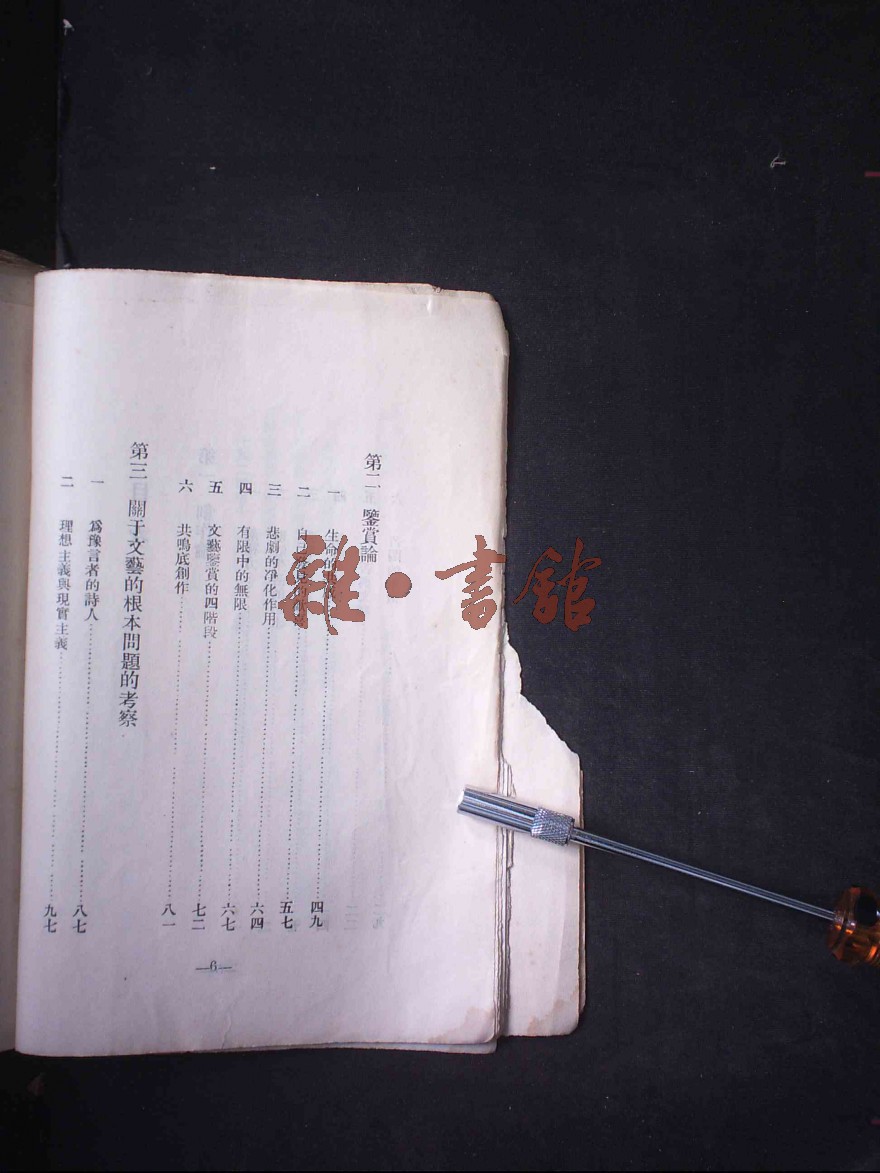 第二 鑒賞論
一 生命的……四九
二 自己……的……五七
三 悲劇的净化作用……六四
四 有限中的無限……六七
五 文藝鑒賞的四階段……七二
六 共鳴底創作……八一
第三 關于文藝的根本問題的考察
一 爲豫言者的詩人……八七
二 理想主義與現實主義……九七
—6—
雜·書館